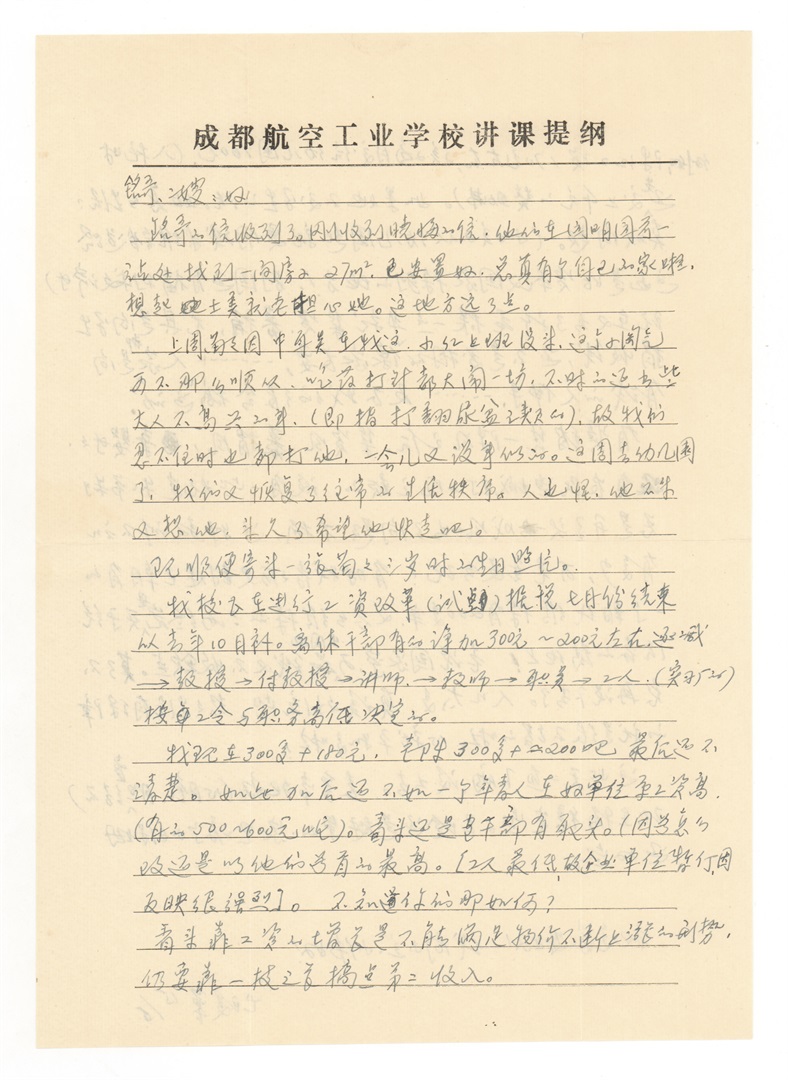 成都航空工业学校讲课提纲
铭哥、二嫂：好
铭哥的信收到了。刚收到晓梅的信，他们在圆明园另一
处找到一间房子 27m²，已安置好，总算有了自己的家啦，
想起她上美就老担心她。这地方远了点。
上周因中耳炎在我这，小红上班没来，这个小淘气
可不那么顺从、吃药打针都大闹一场，不时的还出些
大人不高兴的事，（即指打翻尿盆之类的），故我们
忍不住时也都打他，一会儿又没事似的。这周去幼儿园
了，我们又恢复了往常的生活秩序。人也怪，他不来
又想他，来久了希望他快走吧。
既顺便寄来一张三岁时的生日照片。
我校正在进行工资改革（试点）据说七月份结束
从去年10月补。离休干部有的涨加300元～200元左右，递减
→教授→付教授→讲师→教师→职员→工人（实习的）
按工令与职务高低决定的。
我现在300多+180元，300多+≈200吧 最后还不
清楚。如此加后还不如一个年青人在好单位原工资高，
（有的500~600元呢）。看来还是老干部有甜头。（因为怎么
改还是以他们为首的最高。［工人最低，故企业单位暂行，因
反映很强烈］。 不知道你们那如何？
看来靠工资的增长是不能满足物价不断上涨的形势，
仍要靠一技之长搞点第二收入。